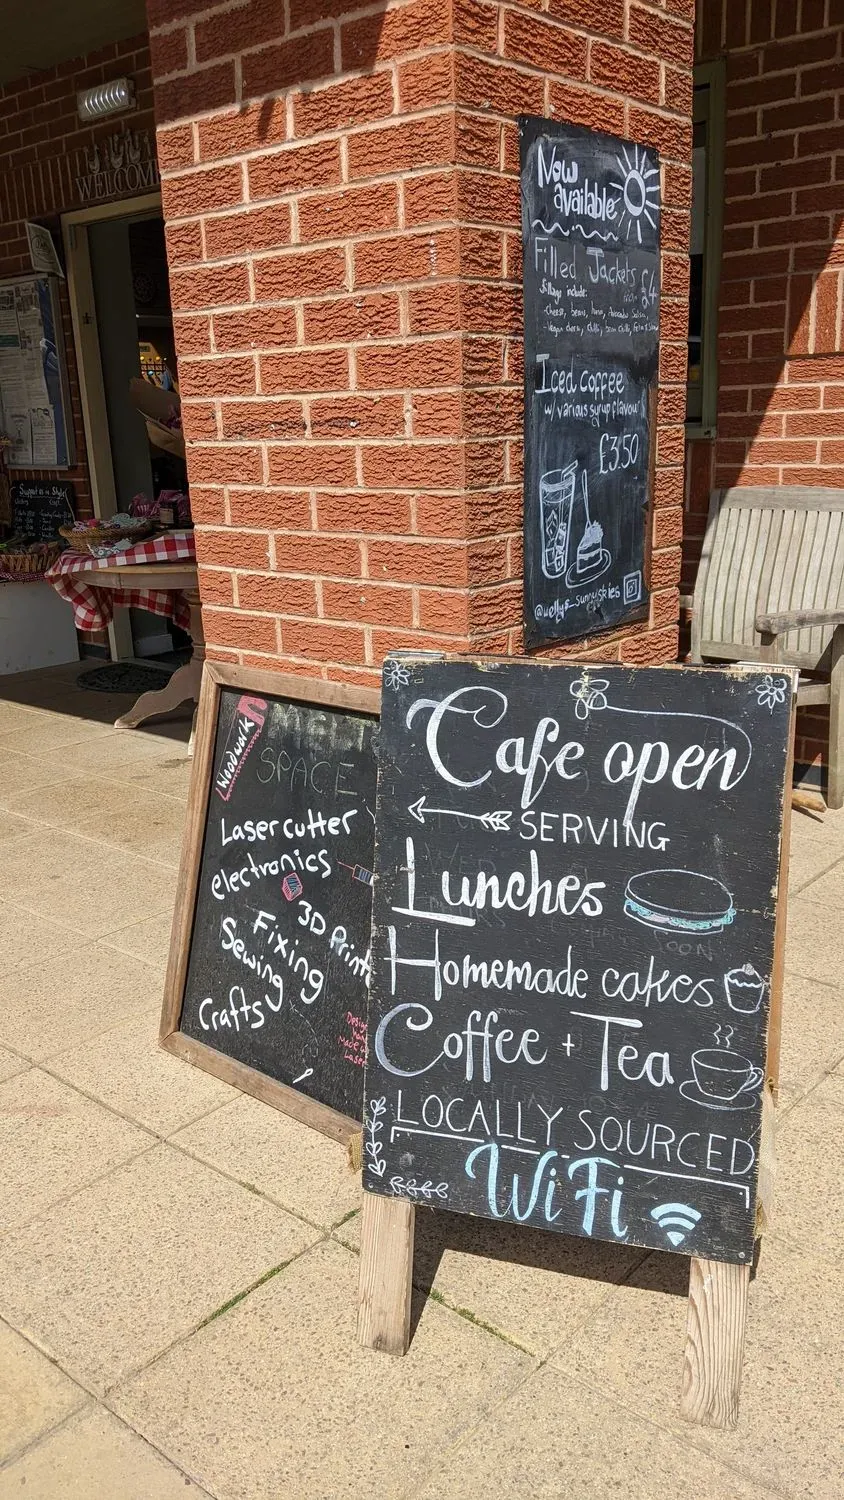 WELCOME
Now
available
Filled Jackets £4
fillings include:
-cheese, beans, tuna,
-vegan cheese, chilli, bean chilli,
Iced coffee
w/ various syrup flavour
£3.50
Support us in Style
Woodwork
SPACE
Laser cutter
electronics
3D Print
Fixing
Sewing
Crafts
Cafe open
SERVING
Lunches
Homemade cakes
Coffee + Tea
LOCALLY SOURCED
WiFi